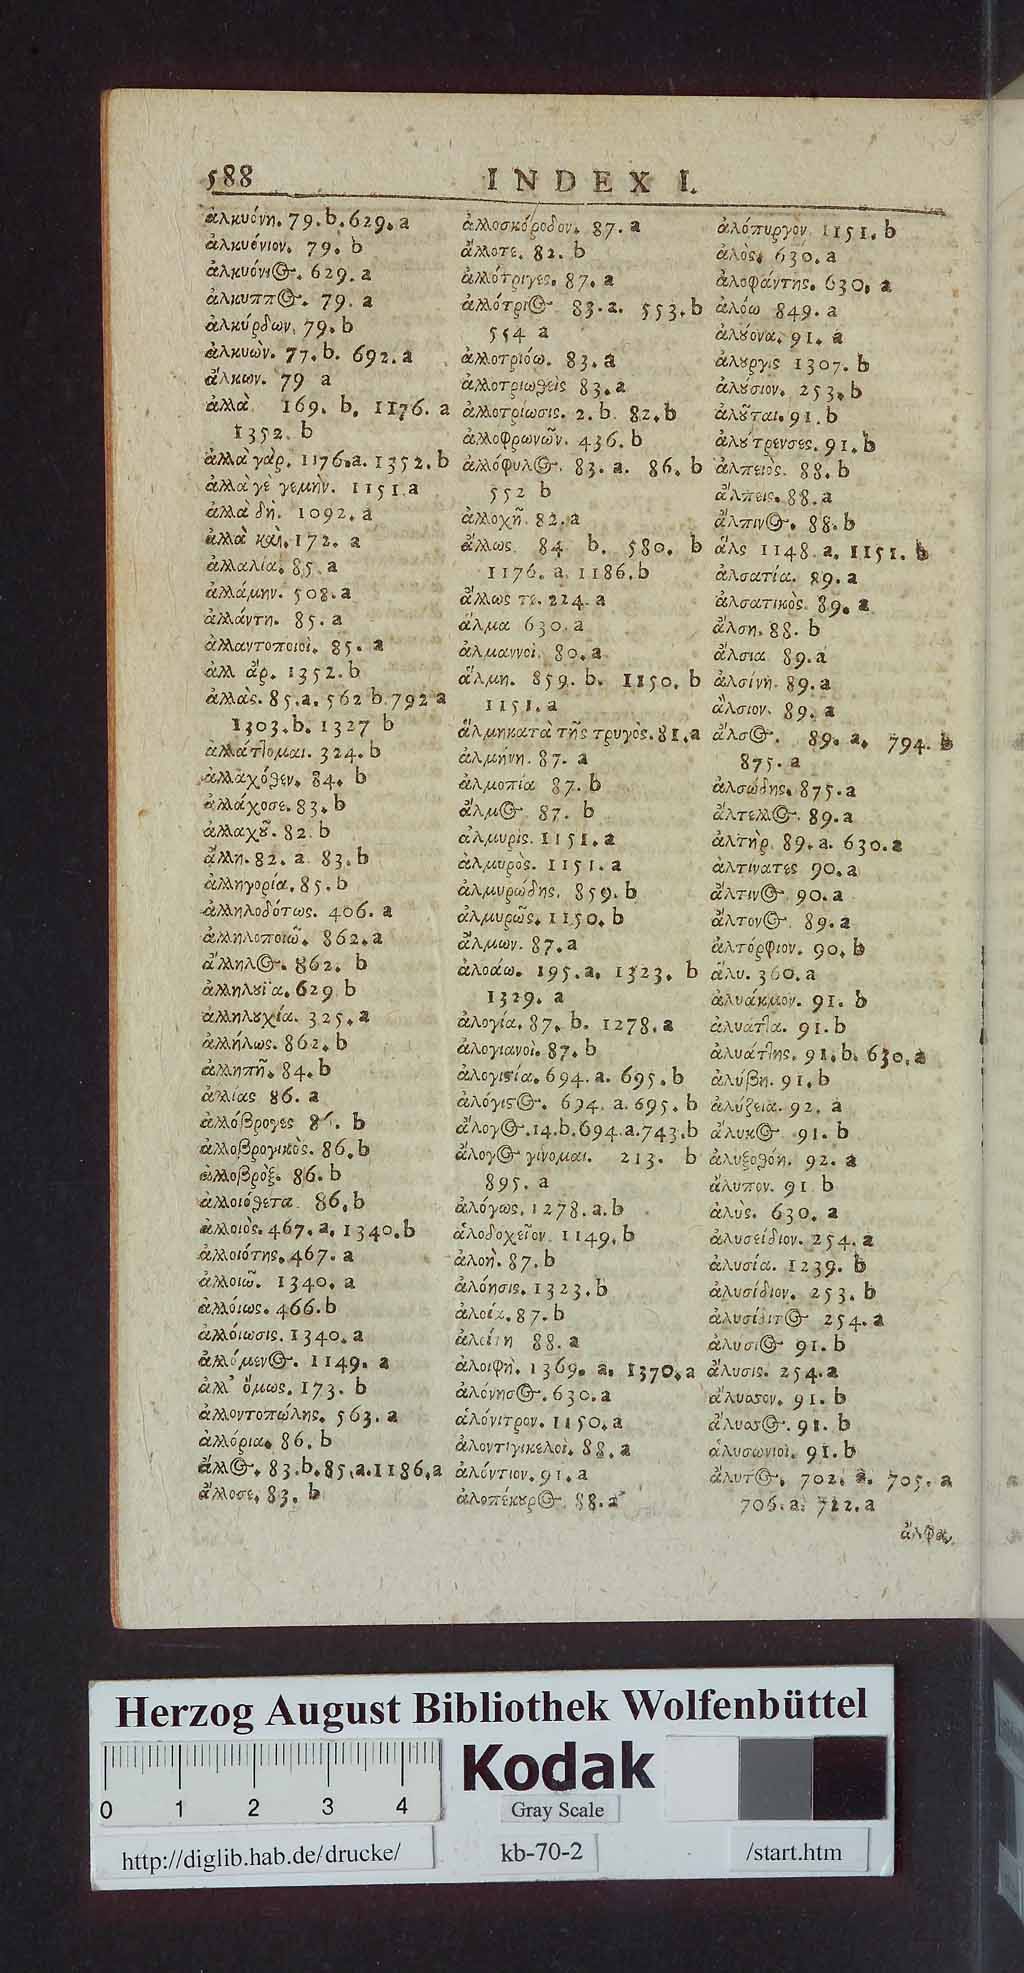 588 INDEX I.
ἀλκυόνη. 79. b. 629. a
ἀλκυόνιον. 79. b
ἀλκυόνιος. 629. a
ἄλκυππος. 79. a
ἀλκύρδων. 79. b
ἀλκυών. 77. b. 692. a
ἄλκων. 79 a
ἀλλὰ 169. b. 1176. a
1352. b
ἀλλὰ γὰρ. 1176. a. 1352. b
ἀλλὰ γὲ γεμὴν. 1151. a
ἀλλὰ δὴ. 1092. a
ἀλλὰ καὶ. 172. a
ἀλλαλία. 85. a
ἀλλάμην. 508. a
ἀλλάντη. 85. a
ἀλλαντοποιοὶ. 85. a
ἀλλ ἄρ. 1352. b
ἀλλὰς. 85. a. 562 b. 792 a
1303. b. 1327 b
ἀλλάτλομαι. 324. b
ἀλλαχόθεν. 84. b
ἀλλάχοσε. 83. b
ἀλλαχοῦ. 82. b
ἄλλη. 82. a. 83. b
ἀλληγορία. 85. b
ἀλληλοδότως. 406. a
ἀλληλοποιῶ. 862. a
ἄλληλος. 862. b
ἀλληλούϊα. 629 b
ἀλληλουχία. 325. a
ἀλλήλως. 862. b
ἀλληπῆ. 84. b
ἀλλίας 86. a
ἀλλόβρογες 86. b
ἀλλοβρογικὸς. 86. b
ἀλλοβρὸξ. 86. b
ἀλλοιόθετα 86. b
ἀλλοιὸς. 467. a. 1340. b
ἀλλοιότης. 467. a
ἀλλοιῶ. 1340. a
ἀλλόιως. 466. b
ἀλλόιωσις. 1340. a
ἀλλόμενος. 1149. a
ἀλλ' ὅμως. 173. b
ἀλλοντοπώλης. 563. a
ἀλλόρια. 86. b
ἄλλος. 83. b. 85. a. 1186. a
ἄλλοσε. 83. b
ἀλλοσκόροδον. 87. a
ἄλλοτε. 82. b
ἀλλότριγες. 87. a
ἀλλότριος 83. a. 553. b
554 a
ἀλλοτριόω. 83. a
ἀλλοτριωθεὶς 83. a
ἀλλοτρίωσις. 2. b. 82. b
ἀλλοφρωνῶν. 436. b
ἀλλόφυλος. 83. a. 86. b
552 b
ἀλλοχῆ. 82. a
ἄλλως 84 b. 580. b
1176. a. 1186. b
ἄλλως τε. 224. a
ἅλμα 630. a
ἀλμαννοὶ. 80. a
ἅλμη. 859. b. 1150. b
1151. a
ἅλμηκατὰ τῆς τρυγὸς. 81. a
ἀλμήνη. 87. a
ἀλμοπία 87. b
ἄλμος 87. b
ἁλμυρὶς. 1151. a
ἁλμυρὸς. 1151. a
ἁλμυρώδης. 859. b
ἁλμυρῶς. 1150. b
ἄλμων. 87. a
ἀλοάω. 195. a. 1323. b
1329. a
ἀλογία. 87. b. 1278. a
ἀλογιανοὶ. 87. b
ἀλογιστία. 694. a. 695. b
ἀλόγιστος. 694. a. 695. b
ἄλογος. 14. b. 694. a. 743. b
ἄλογος γίνομαι. 213. b
895. a
ἀλόγως. 1278. a. b
ἁλοδοχεῖον. 1149. b
ἀλοὴ. 87. b
ἀλόησις. 1323. b
ἀλοία. 87. b
88. a
ἀλοιφὴ. 1369. a. 1370. a
ἀλόνησος. 630. a
ἁλόνιτρον. 1150. a
ἀλοντιγικελοὶ. 88. a
ἀλόντιον. 91. a
ἀλοπέκουρος. 88. a
ἁλόπυργον. 1151. b
ἁλὸς. 630. a
ἁλοφάντης. 630. a
ἁλόω 849. a
ἀλούονα. 91. a
ἁλουργὶς 1307. b
ἀλούσιον. 253. b
ἀλοῦται. 91. b
ἀλούτρενσες. 91. b
ἀλπειὸς. 88. b
ἄλπεις. 88. a
ἄλπινος. 88. b
ἅλς 1148. a. 1151. b
ἀλσατία. 89. a
ἀλσατικὸς. 89. a
ἄλση. 88. b
ἄλσια 89. a
ἀλσίνη. 89. a
ἄλσιον. 89. a
ἄλσος. 89. a. 794. b
875. a
ἀλσώδης. 875. a
ἄλτελλος. 89. a
ἁλτὴρ. 89. a. 630. a
ἀλτίνατες 90. a
ἄλτινος 90. a
ἄλτονος. 89. a
ἀλτόρφιον. 90. b
ἄλυ. 360. a
ἀλυάκμον. 91. b
ἀλυάτλα. 91. b
ἀλυάτλης. 91. b. 630. a
ἀλύβη. 91. b
ἀλύζεια. 92. a
ἄλυκος 91. b
ἀλυξοθόη. 92. a
ἄλυπον. 91 b
ἀλὺς. 630. a
ἀλυσείδιον. 254. a
ἀλυσία. 1239. b
ἀλυσίδιον. 253. b
ἀλυσίδιτος 254. a
ἀλυσιος 91. b
ἄλυσις. 254. a
ἄλυσσον. 91. b
ἄλυσσος. 91. b
ἀλυσωνιοὶ. 91. b
ἄλυτος. 702. a. 705. a
706. a. 722. a
ἄλφα
Herzog August Bibliothek Wolfenbüttel
Kodak
0 1 2 3 4
Gray Scale
http://diglib.hab.de/drucke/ kb-70-2 /start.htm